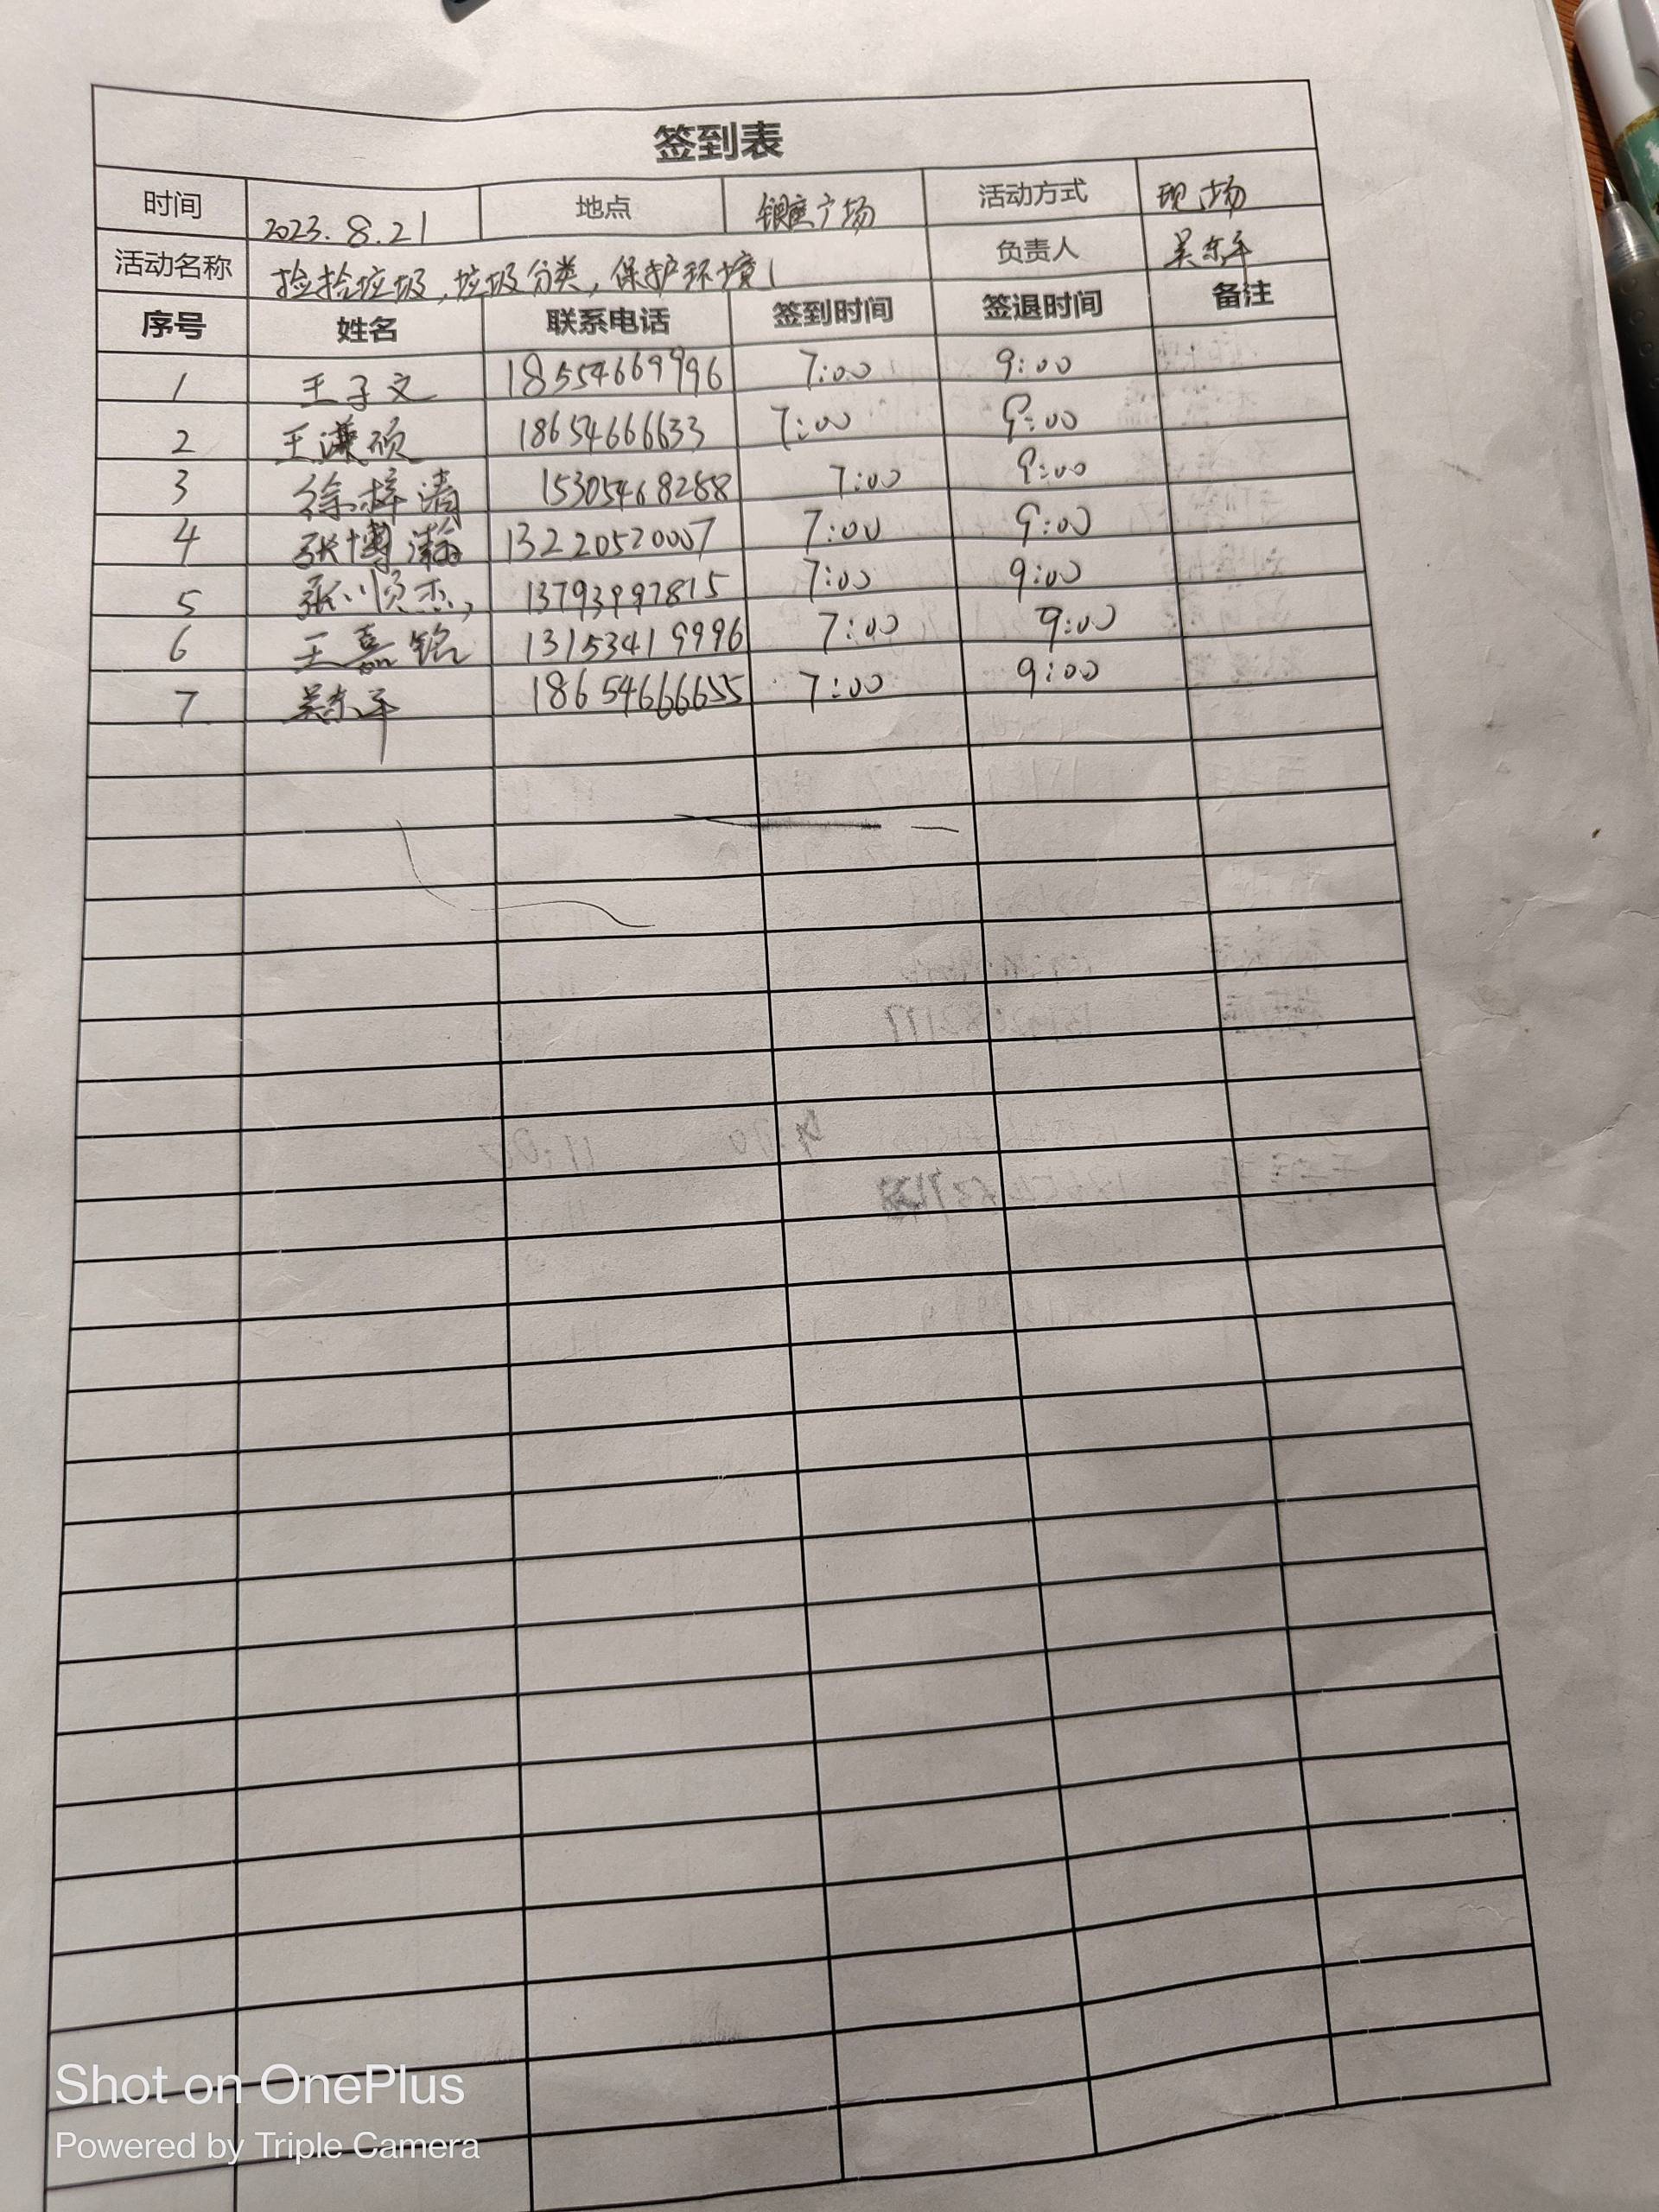 签到表
时间 2023.8.21 地点 银座广场 活动方式 现场
活动名称 捡拾垃圾,垃圾分类,保护环境! 负责人 吴东平
序号 姓名 联系电话 签到时间 签退时间 备注
1 王子文 18554669996 7:00 9:00
2 王谦硕 18654666633 7:00 9:00
3 徐梓清 15305468288 7:00 9:00
4 张博瀚 13220520007 7:00 9:00
5 张顺杰, 13793997815 7:00 9:00
6 王嘉铭 13153419996 7:00 9:00
7 吴东平 18654666655 7:00 9:00
Shot on OnePlus
Powered by Triple Camera